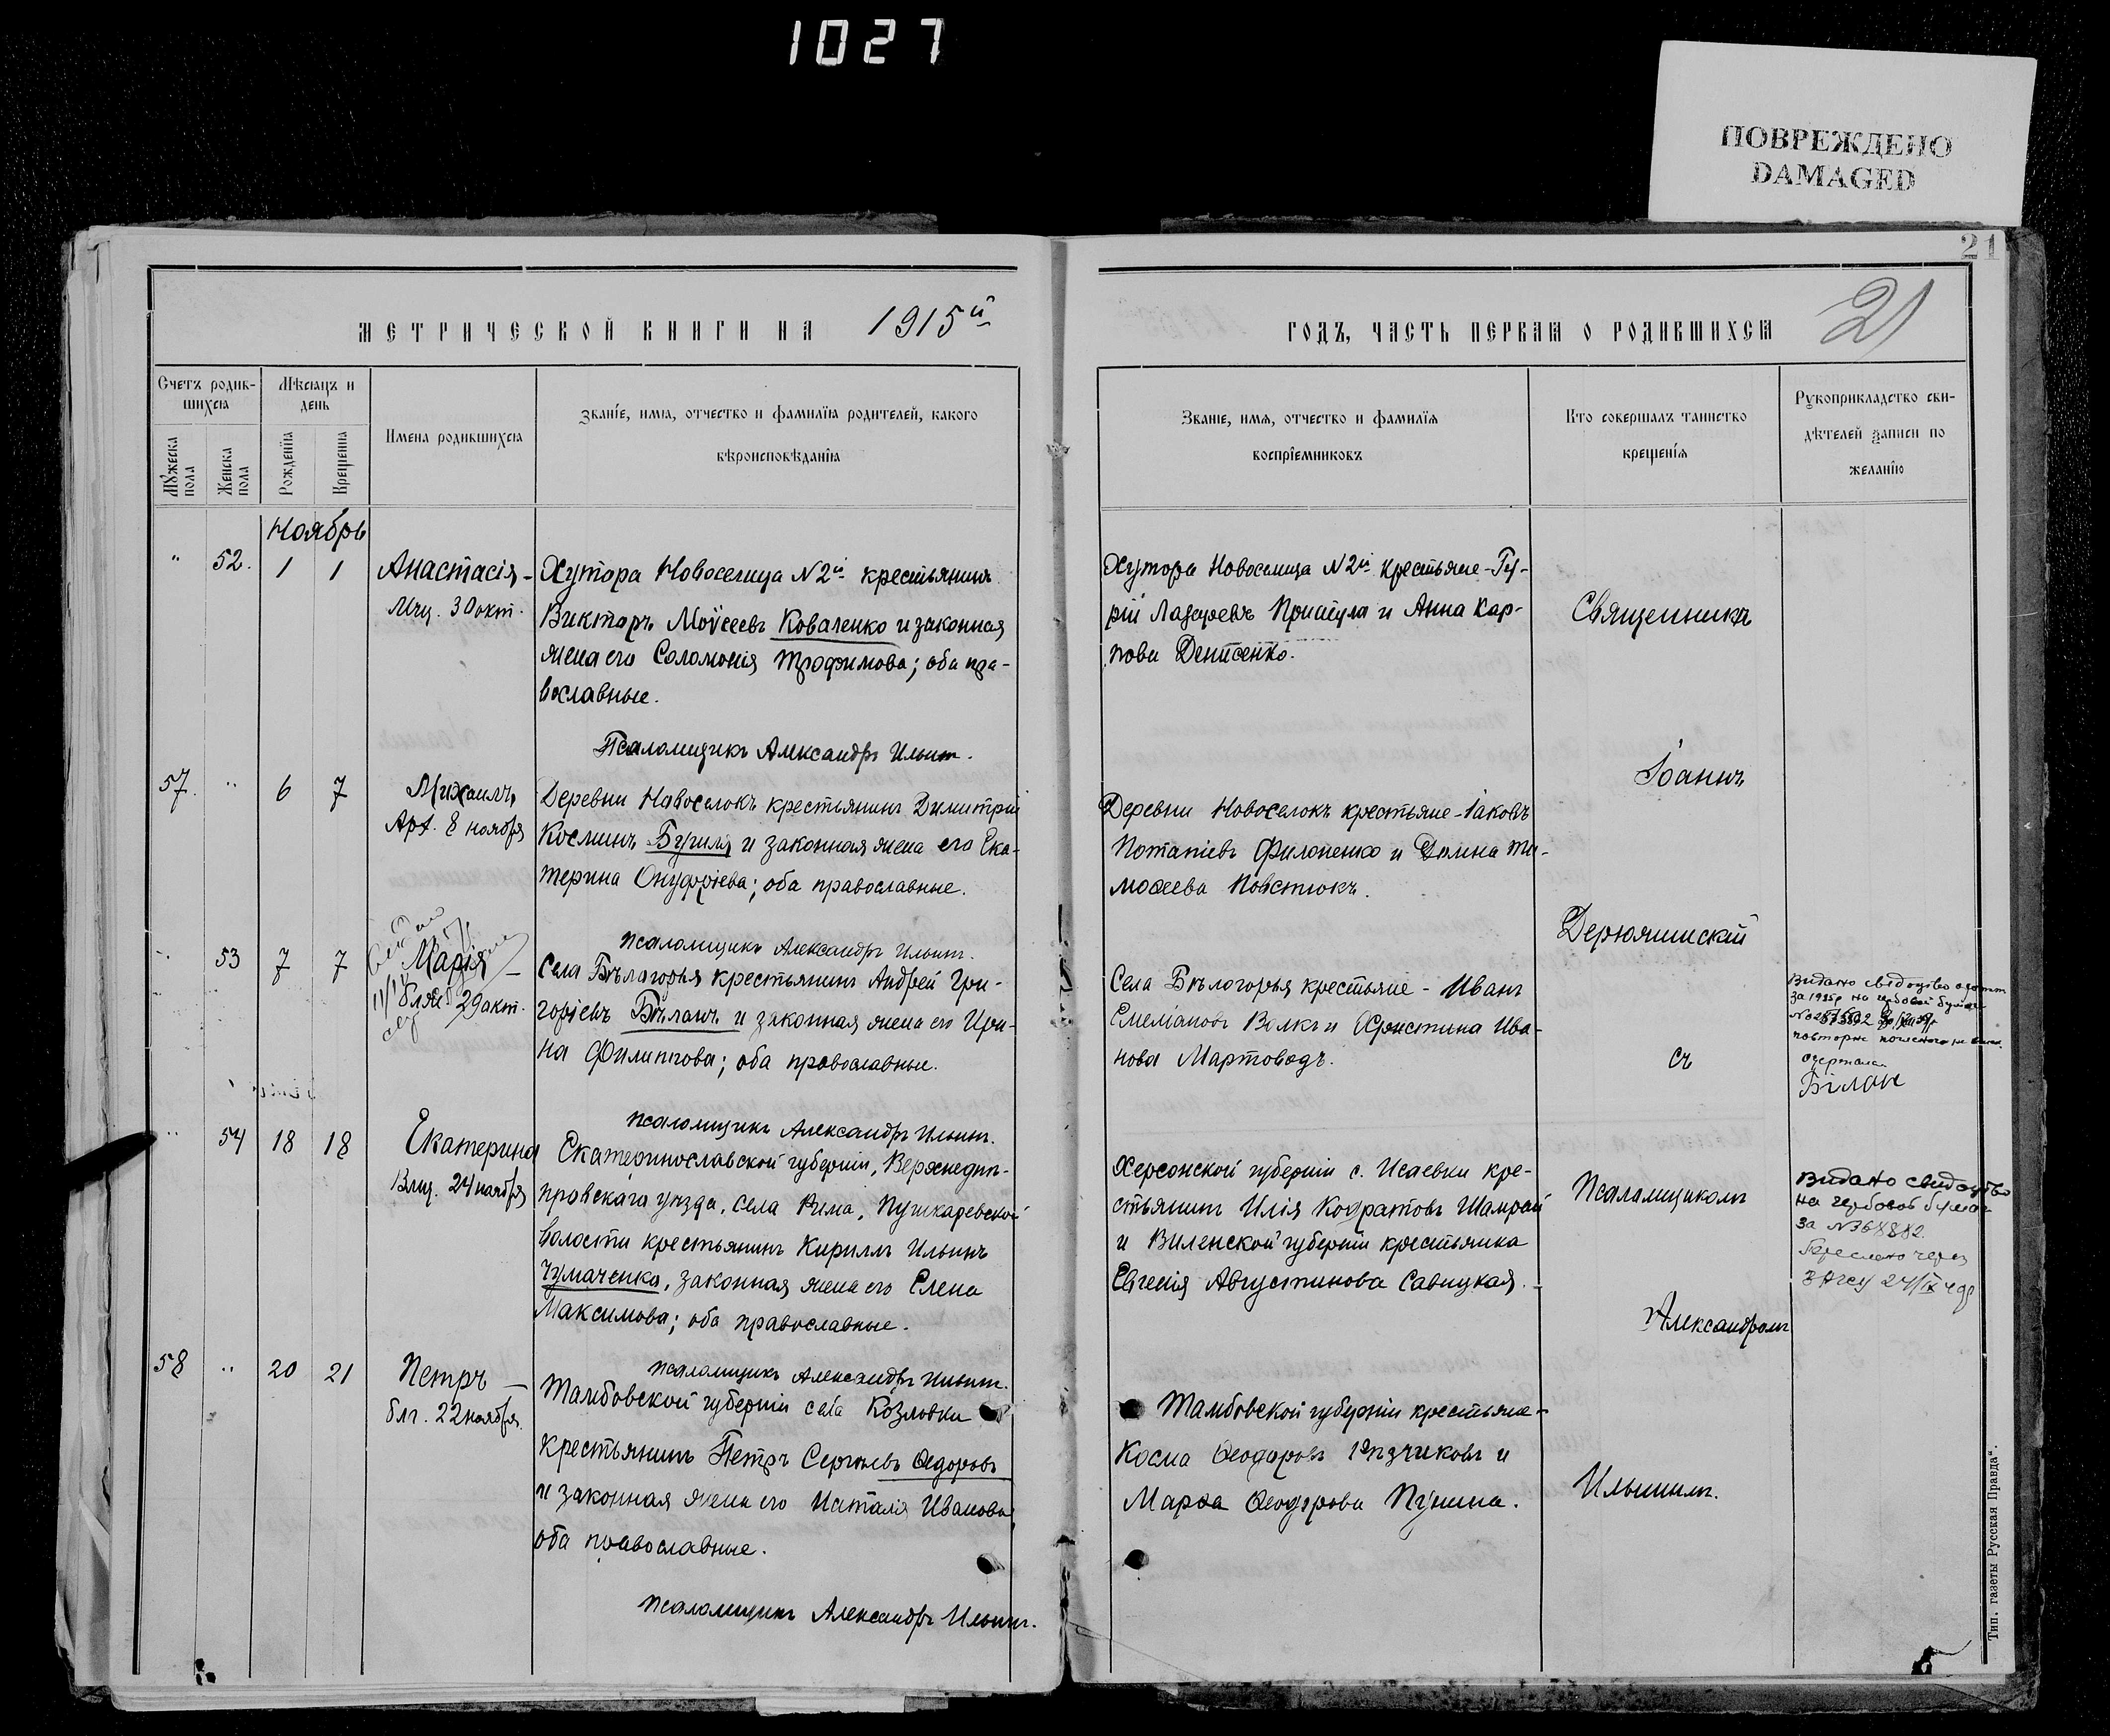 1027
ПОВРЕЖДЕНО
DAMAGED
21
21
МЕТРИЧЕСКОЙ КНИГИ НА 1915й
ГОДЪ, ЧАСТЬ ПЕРВАЯ О РОДИВШИХСЯ
Счетъ родив-
шихся
Мѣсяцъ и
день
Мужеска
пола
Женска
пола
Рожденія
Крещенія
Имена родившихся
Званіе, имя, отчество и фамилія родителей, какого
вѣроисповѣданія
Званіе, имя, отчество и фамилія
воспріемниковъ
Кто совершалъ таинство
крещенія
Рукоприкладство сви-
дѣтелей записи по
желанію
Ноябрь
" 52. 1 1
Анастасія -
Мчц. 30 окт.
Хутора Новоселица N2й крестьянинъ
Викторъ Моѵсеевъ Коваленко и законная
жена его Соломонія Трофимова; оба пра-
вославные.
Псаломщикъ Александръ Ильинъ.
Хутора Новоселица N2й крестьяне - Гу-
рій Лазаревъ Пришула и Анна Кар-
пова Денисенко.
Священникъ
57. " 6 7
Михаилъ
Арх. 8 ноября
Деревни Новоселокъ крестьянинъ Димитрій
Косминъ Бугиля и законная жена его Ека-
терина Онуфріева; оба православные.
Псаломщикъ Александръ Ильинъ.
Деревни Новоселокъ крестьяне - Іаковъ
Потапіевъ Филоненко и Домна Ти-
моѳеева Повстюкъ.
Іоаннъ
" 53 7 7
Марія -
29 окт.
Села Бѣлагорья крестьянинъ Андрей Гри-
горіевъ Бѣланъ и законная жена его Ири-
на Филиппова; оба православные.
Псаломщикъ Александръ Ильинъ.
Села Бѣлогорья крестьяне - Иванъ
Емеліановъ Волкъ и Христина Ива-
нова Мартоводъ.
Дерюжинскій
съ
Видано свідоцтво
за 1925р на гербовой бумазі
повторне
одержала
Білан
" 54 18 18
Екатерина
Влмц. 24 ноября
Екатеринославской губерніи, Верхнеднѣ-
провскаго уѣзда, села Рима, Пушкаревской
волости крестьянинъ Кириллъ Ильинъ
Чумаченко, законная жена его Елена
Максимова; оба православные.
Псаломщикъ Александръ Ильинъ.
Херсонской губерніи с. Исаевки кре-
стьянинъ Илія Кодратовъ Шамрай
и Виленской губерніи крестьянка
Евгенія Августинова Савицкая. -
Псаломщикомъ
Александромъ
Видано свидоцтво
на гербовой бумазі
за N368882.
через
58 " 20 21
Петръ -
блг. 22 ноября.
Тамбовской губерніи села Козловки
крестьянинъ Петръ Сергѣевъ Ѳедоровъ
и законная жена его Наталія Иванова;
оба православные.
Псаломщикъ Александръ Ильинъ.
Тамбовской губерніи крестьяне -
Косма Ѳеодоровъ и
Марѳа Ѳеодорова Пунина.
Ильинымъ.
Тип. газеты Русская Правда“.